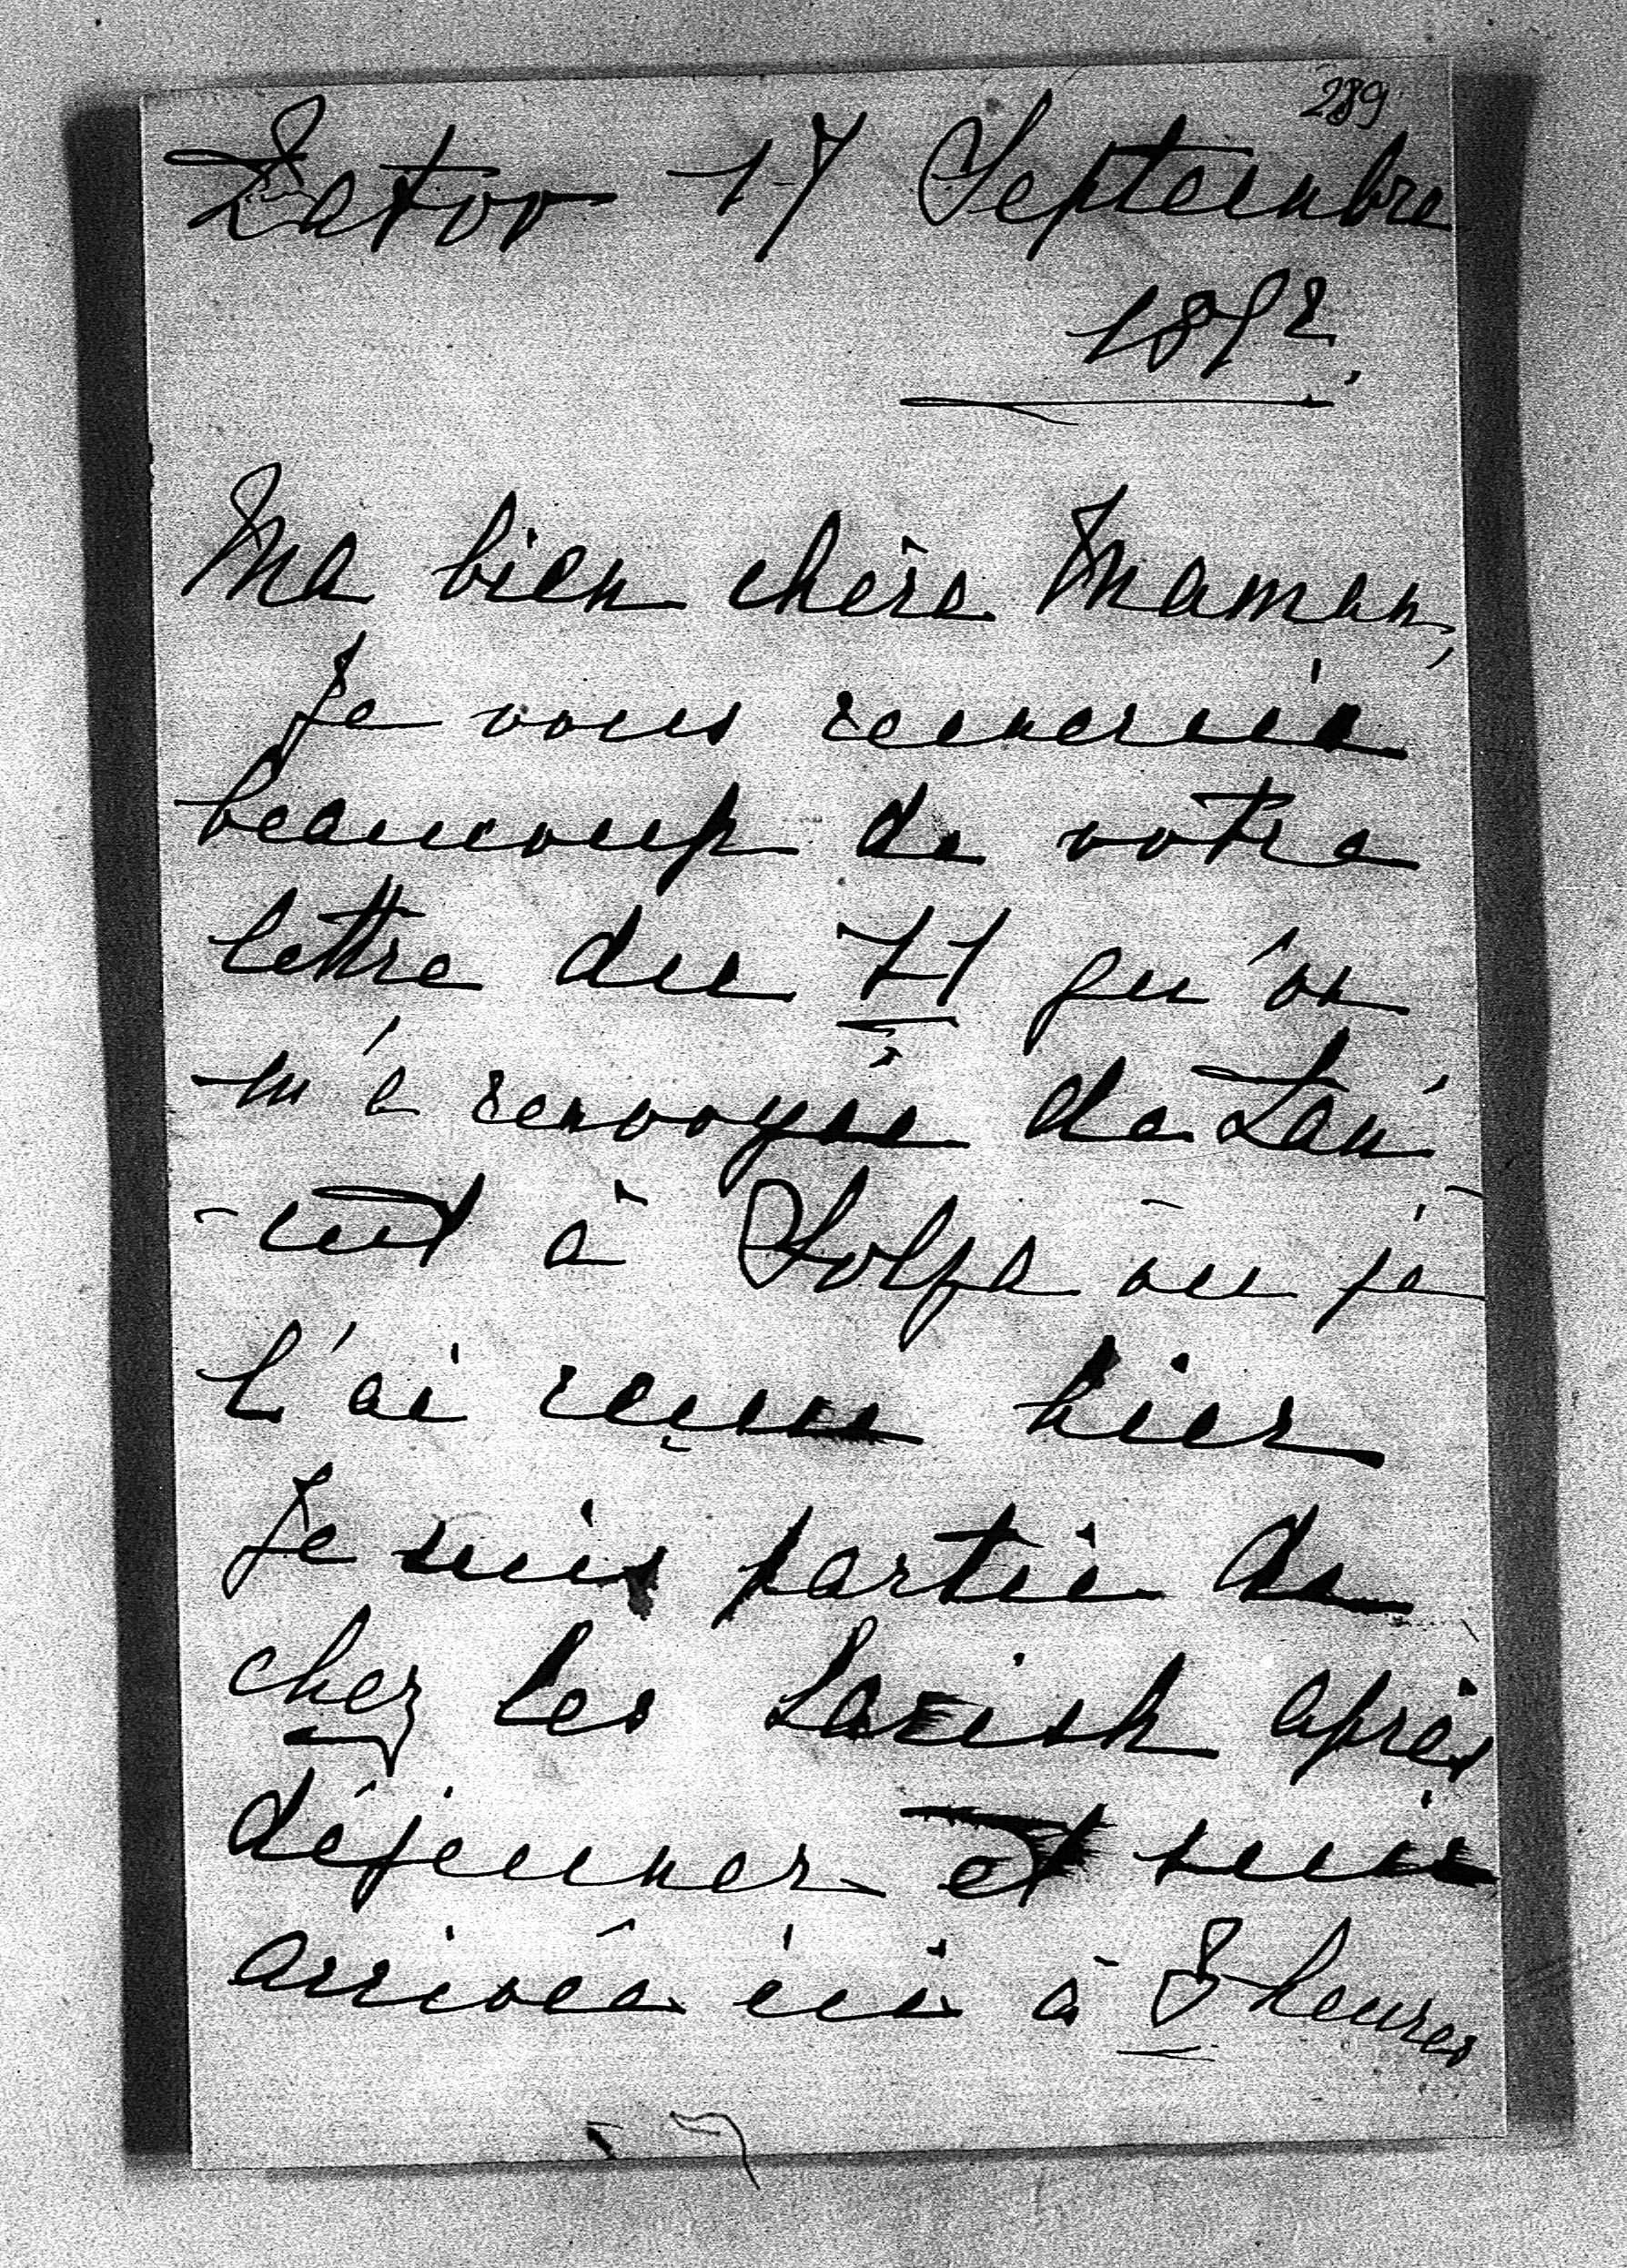 289
Zator 17 Septembre
1892.
Ma bien chère Maman,
Je vous remercie
beaucoup de votre
lettre du 11 qu'on
m'a renvoyée de Lan-
-cut à Stolpe où je
l'ai reçue hier
Je suis partie de
chez les Larish après
déjeuner et suis
arrivée ici à 8 heures